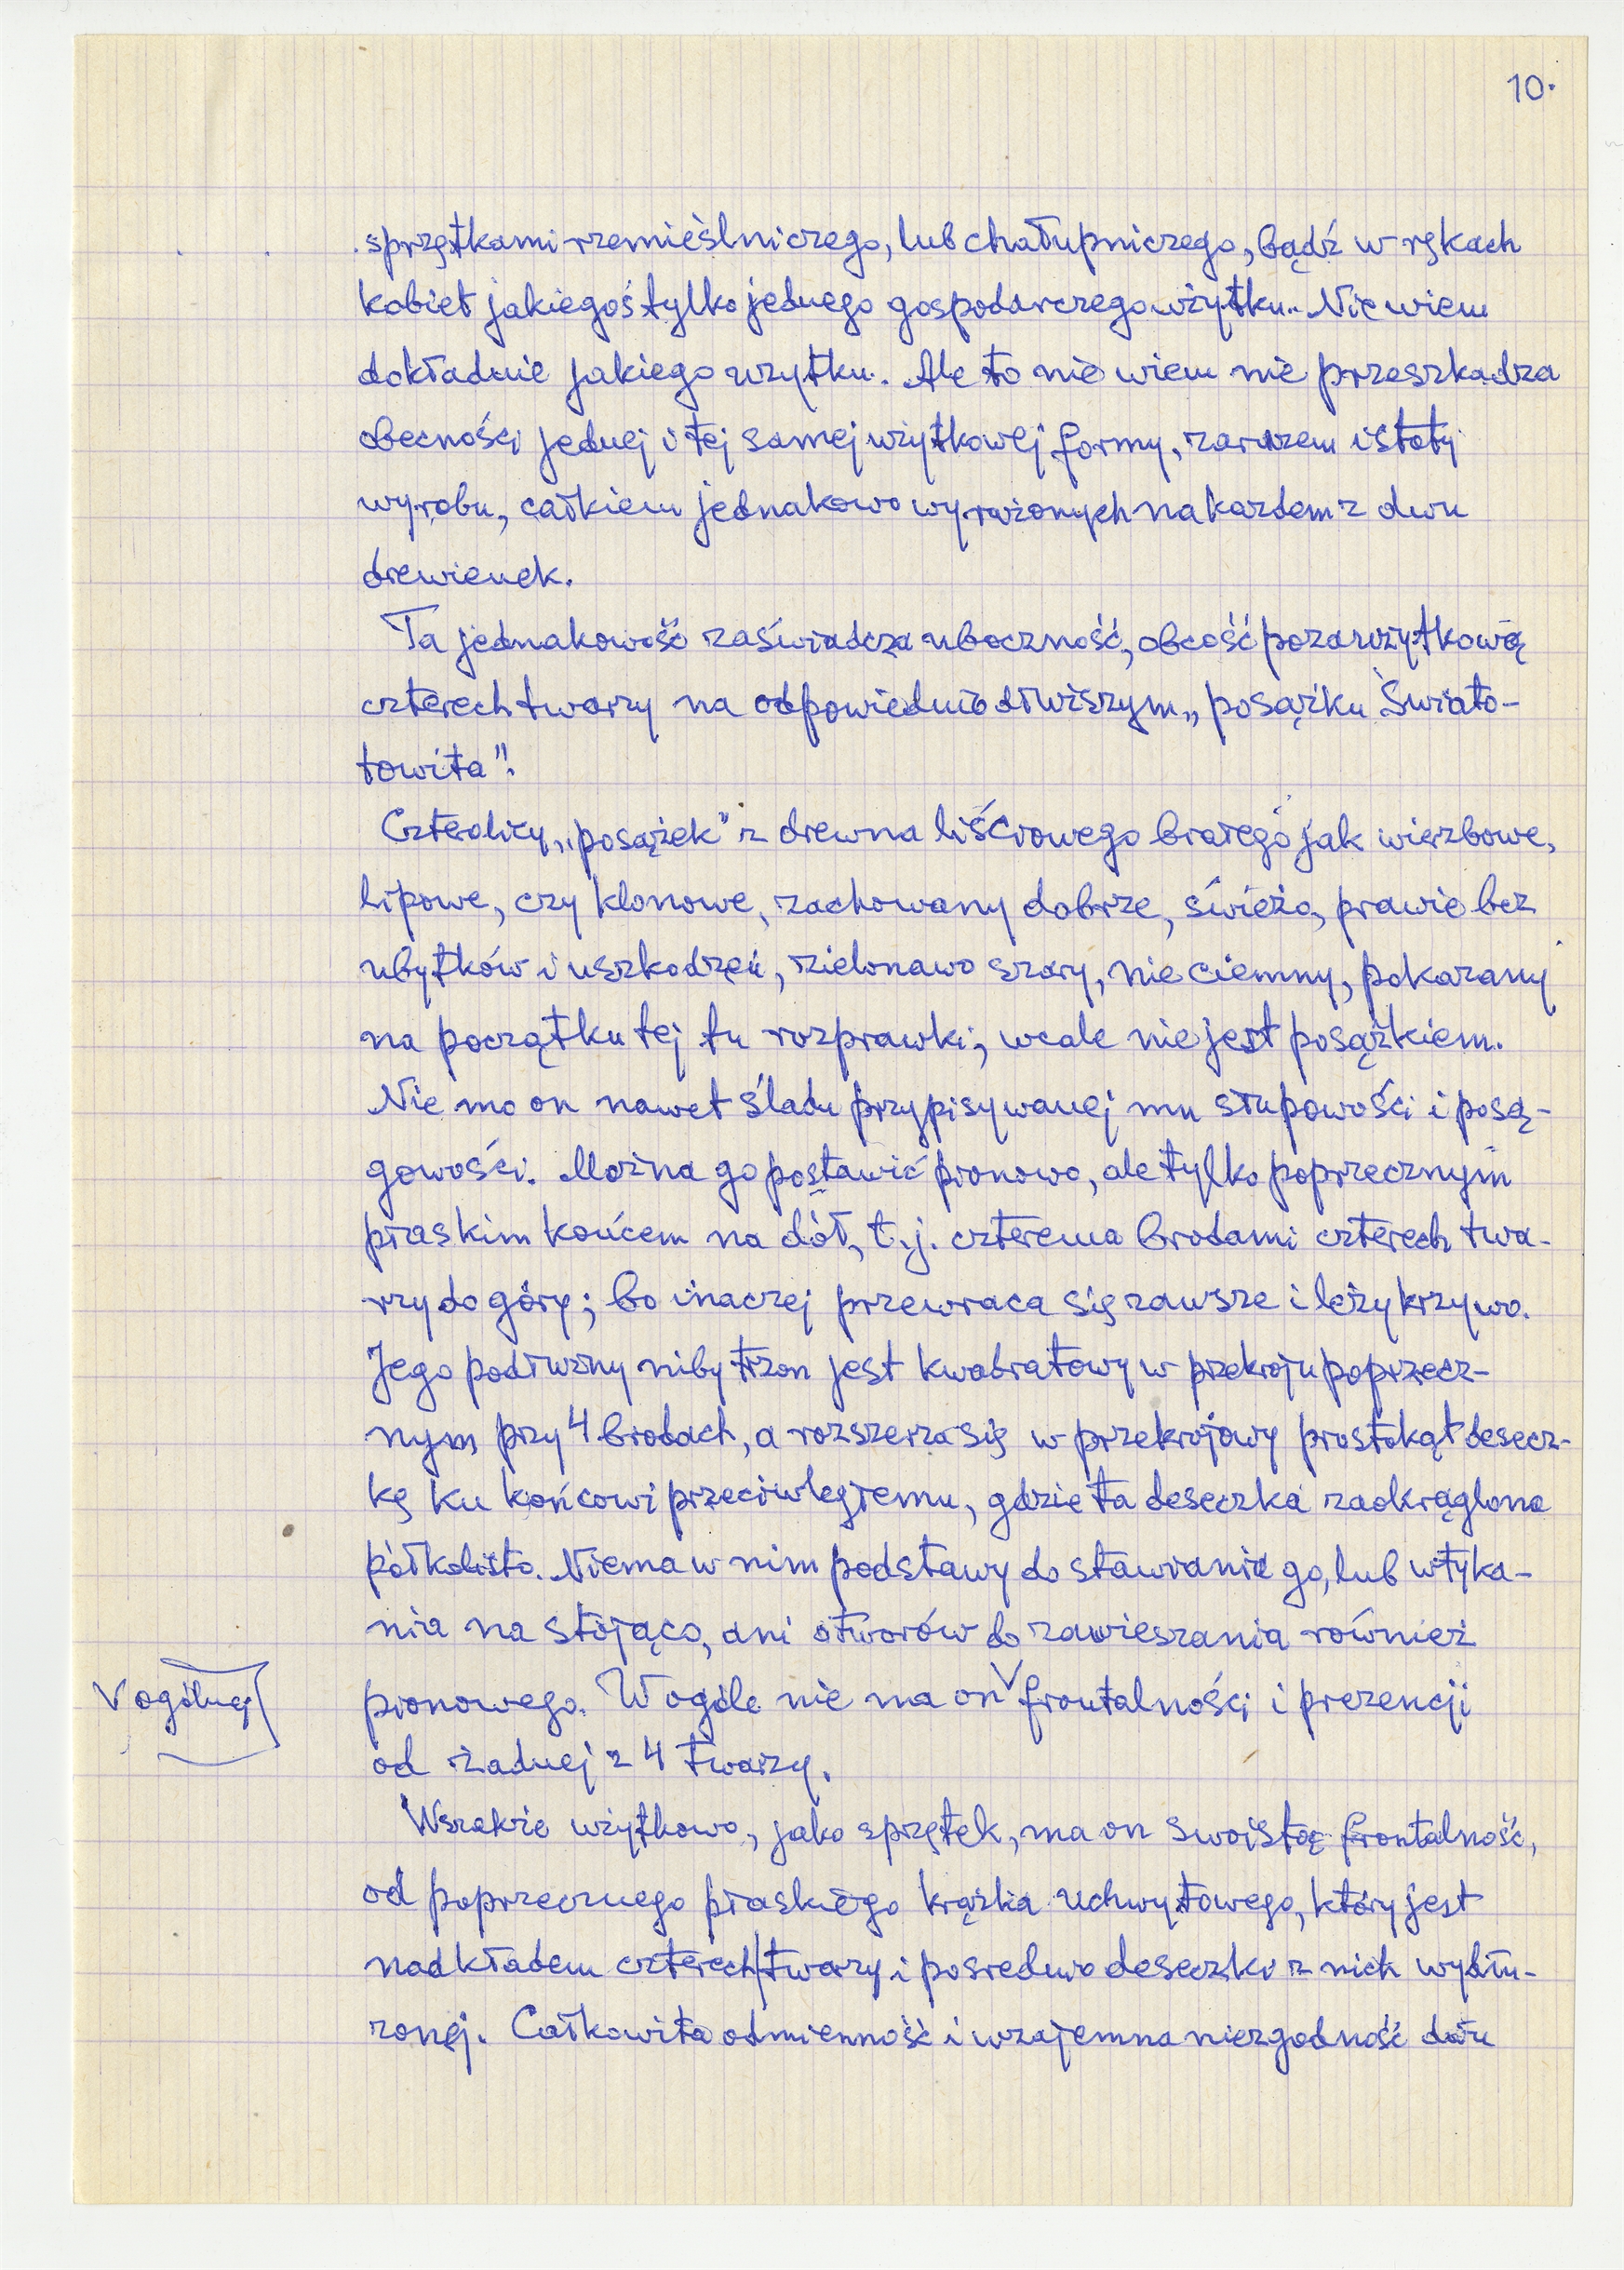 10.
sprzętkami rzemieślniczego, lub chałupniczego, bądź w rękach
kobiet jakiegoś tylko jednego gospodarczego użytku. Nie wiem
dokładnie jakiego użytku. Ale to nie wiem nie przeszkadza
obecności jednej i tej samej użytkowej formy, zarazem istoty
wyrobu, całkiem jednakowo wyrażonych na każdem z dwu
drewienek.
Ta jednakowość zaświadcza uboczność, obcość pozaużytkową
czterech twarzy na odpowiednio dłuższym „posążku Świato-
towita".
Czterolicy „posążek" z drewna liściowego białego jak wierzbowe,
lipowe, czy klonowe, zachowany dobrze, świeżo, prawie bez
ubytków i uszkodzeń, zielonawo szary, nie ciemny, pokazany
na początku tej tu rozprawki, wcale nie jest posążkiem.
Nie ma on nawet śladu przypisywanej mu słupowości i posą-
gowości. Można go postawić pionowo, ale tylko poprzecznym
płaskim końcem na dół, t.j. czterema brodami czterech twa-
rzy do góry; bo inaczej przewraca się zawsze i leży krzywo.
Jego podłużny niby trzon jest kwadratowy w przekroju poprzecz-
nym przy 4 brodach, a rozszerza się w przekrojowy prostokąt desecz-
kę ku końcowi przeciwległemu, gdzie ta deseczka zaokrąglona
półkolisto. Niema w nim podstawy do stawiania go, lub wtyka-
nia na stojąco, ani otworów do zawieszania również
V ogólnej
pionowego. W ogóle nie ma on V frontalności i prezencji
od żadnej z 4 twarzy.
Wszakże użytkowo, jako sprzętek, ma on swoistą frontalność,
od poprzecznego płaskiego krążka uchwytowego, który jest
nadkładem czterech twarzy i pośrednio deseczki z nich wydłu-
żonej. Całkowita odmienność i wzajemna niezgodność dołu